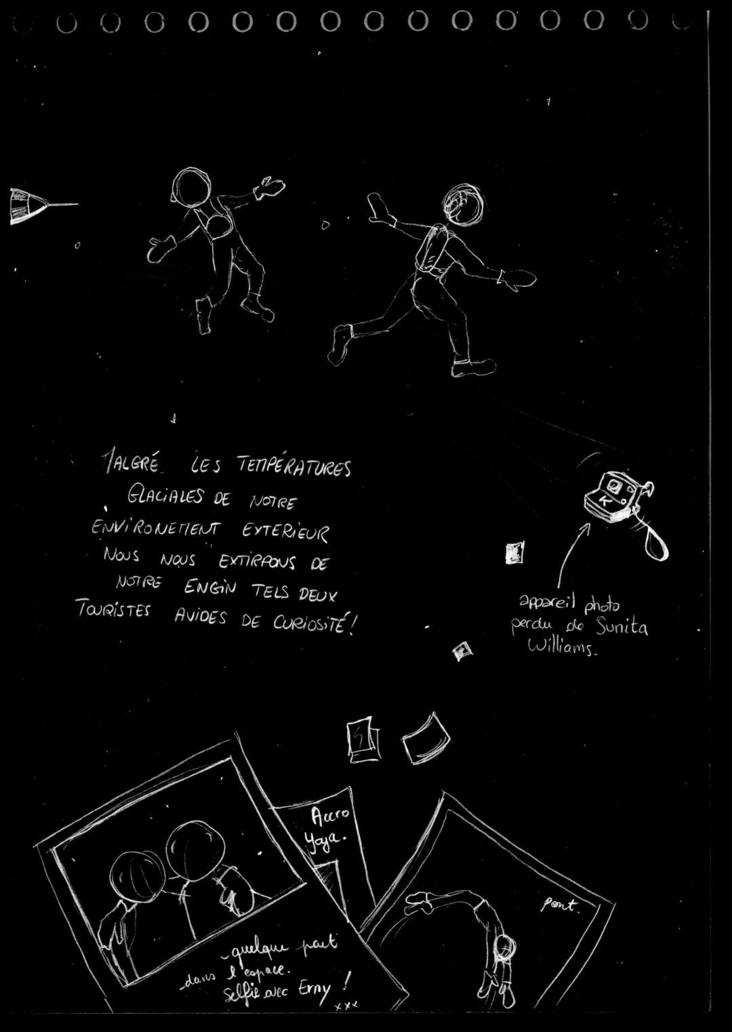 MALGRÉ LES TEMPÉRATURES
GLACIALES DE NOTRE
ENVIRONEMENT EXTERIEUR
NOUS NOUS EXTIRPONS DE
NOTRE ENGIN TELS DEUX
TOURISTES AVIDES DE CURIOSITÉ!
K
appareil photo
perdu de Sunita
Williams.
Accro
Yoga.
pont.
quelque part
dans l'espace.
Selfie avec Erny !
xxx